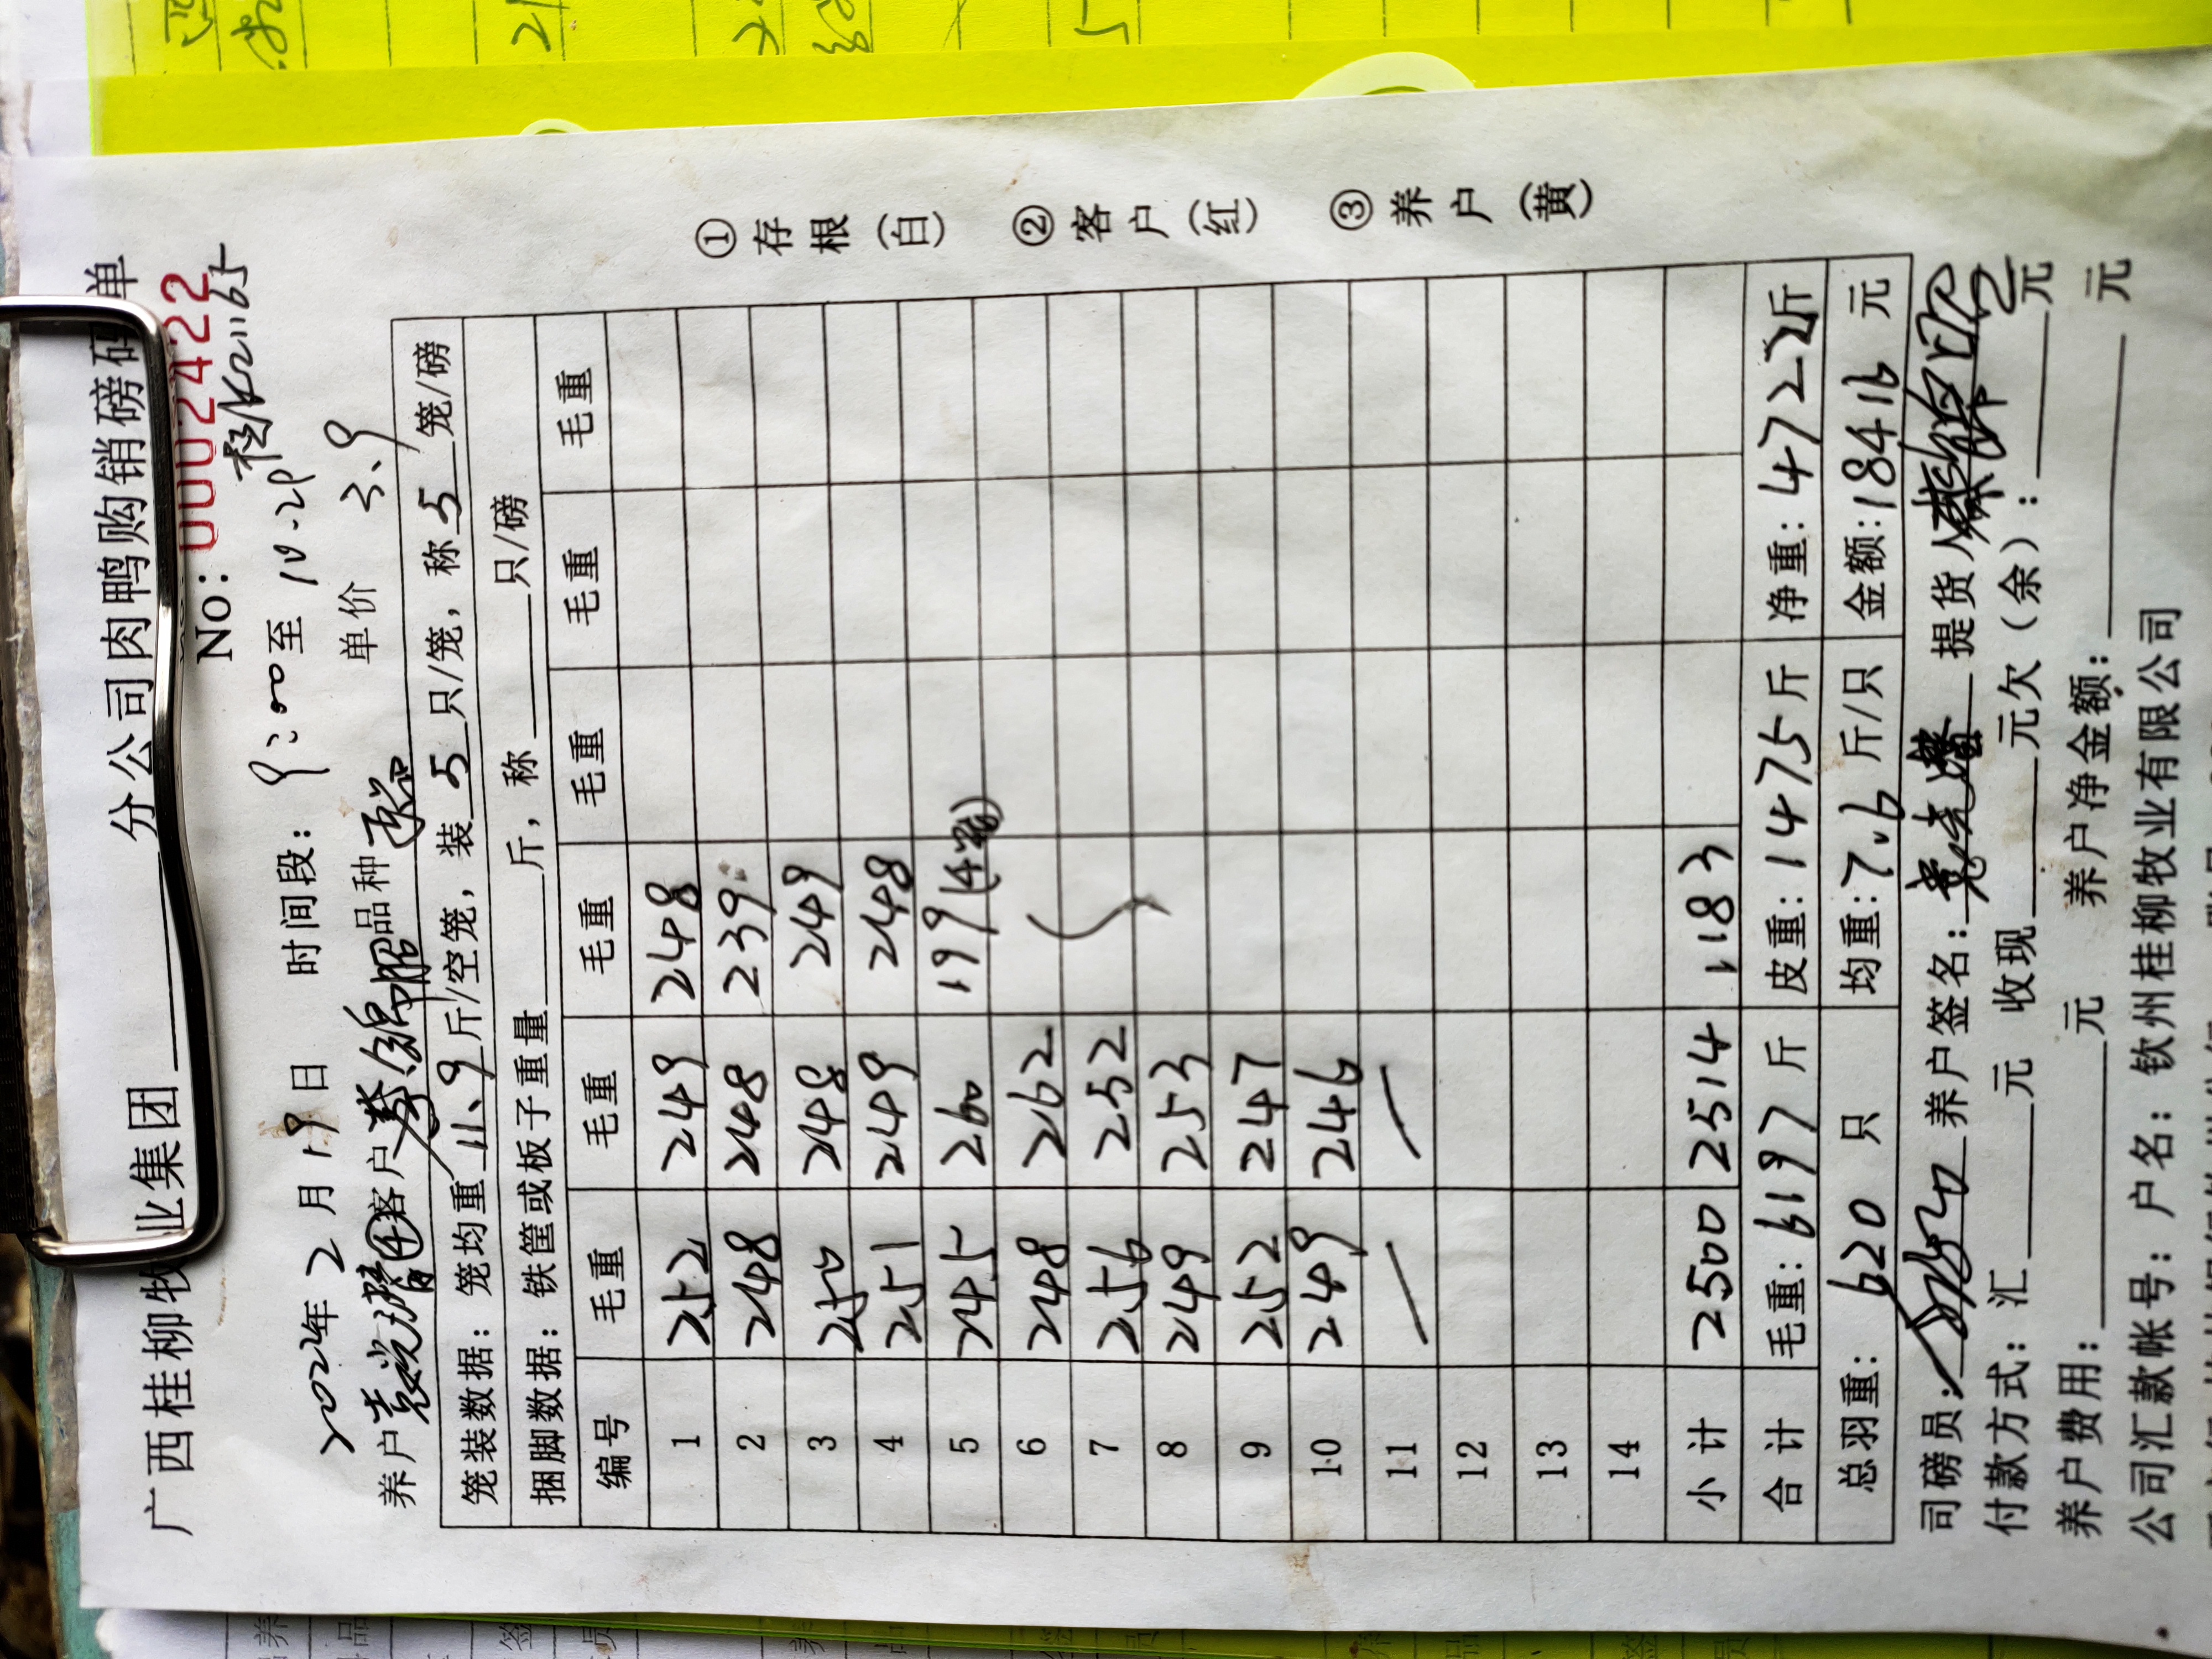 广西桂柳牧业集团 分公司肉鸭购销磅码单
No: 0002422
2024年 2 月 19 日 时间段: 9:00 至 10-20 桂K21165
养户 客户 蔡锦昭 品种 单价 3.9
笼装数据: 笼均重 11.9 斤/空笼, 装 5 只/笼, 称 5 笼/磅
捆脚数据: 铁筐或板子重量 斤, 称 只/磅
编号 毛重 毛重 毛重 毛重 毛重 毛重
1 252 249 248
2 248 248 239
3 250 248 249
4 251 249 248
5 245 260 199 (4笼)
6 248 262
7 256 252
8 249 253
9 252 247
10 249 246
11 — —
12
13
14
小计 2500 2514 1183
合计 毛重: 6197 斤 皮重: 1475 斤 净重: 4722 斤
总羽重: 620 只 均重: 7.6 斤/只 金额: 18416 元
司磅员: 养户签名: 提货人
付款方式: 汇 元 收现 元欠 (余) : 元
养户费用: 元 养户净金额: 元
公司汇款帐号: 户名: 钦州桂柳牧业有限公司
①存根(白) ②客户(红) ③养户(黄)